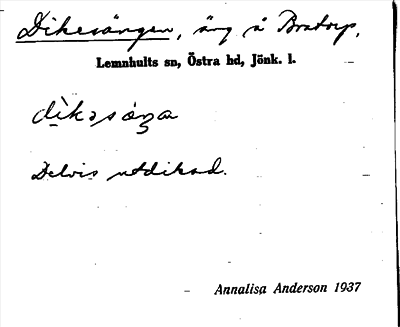 Dikesängen, äng å Bratorp,
Lemnhults sn, Östra hd, Jönk. l.
dìkəsäŋa
Delvis utdikad.
Annalisa Anderson 1937